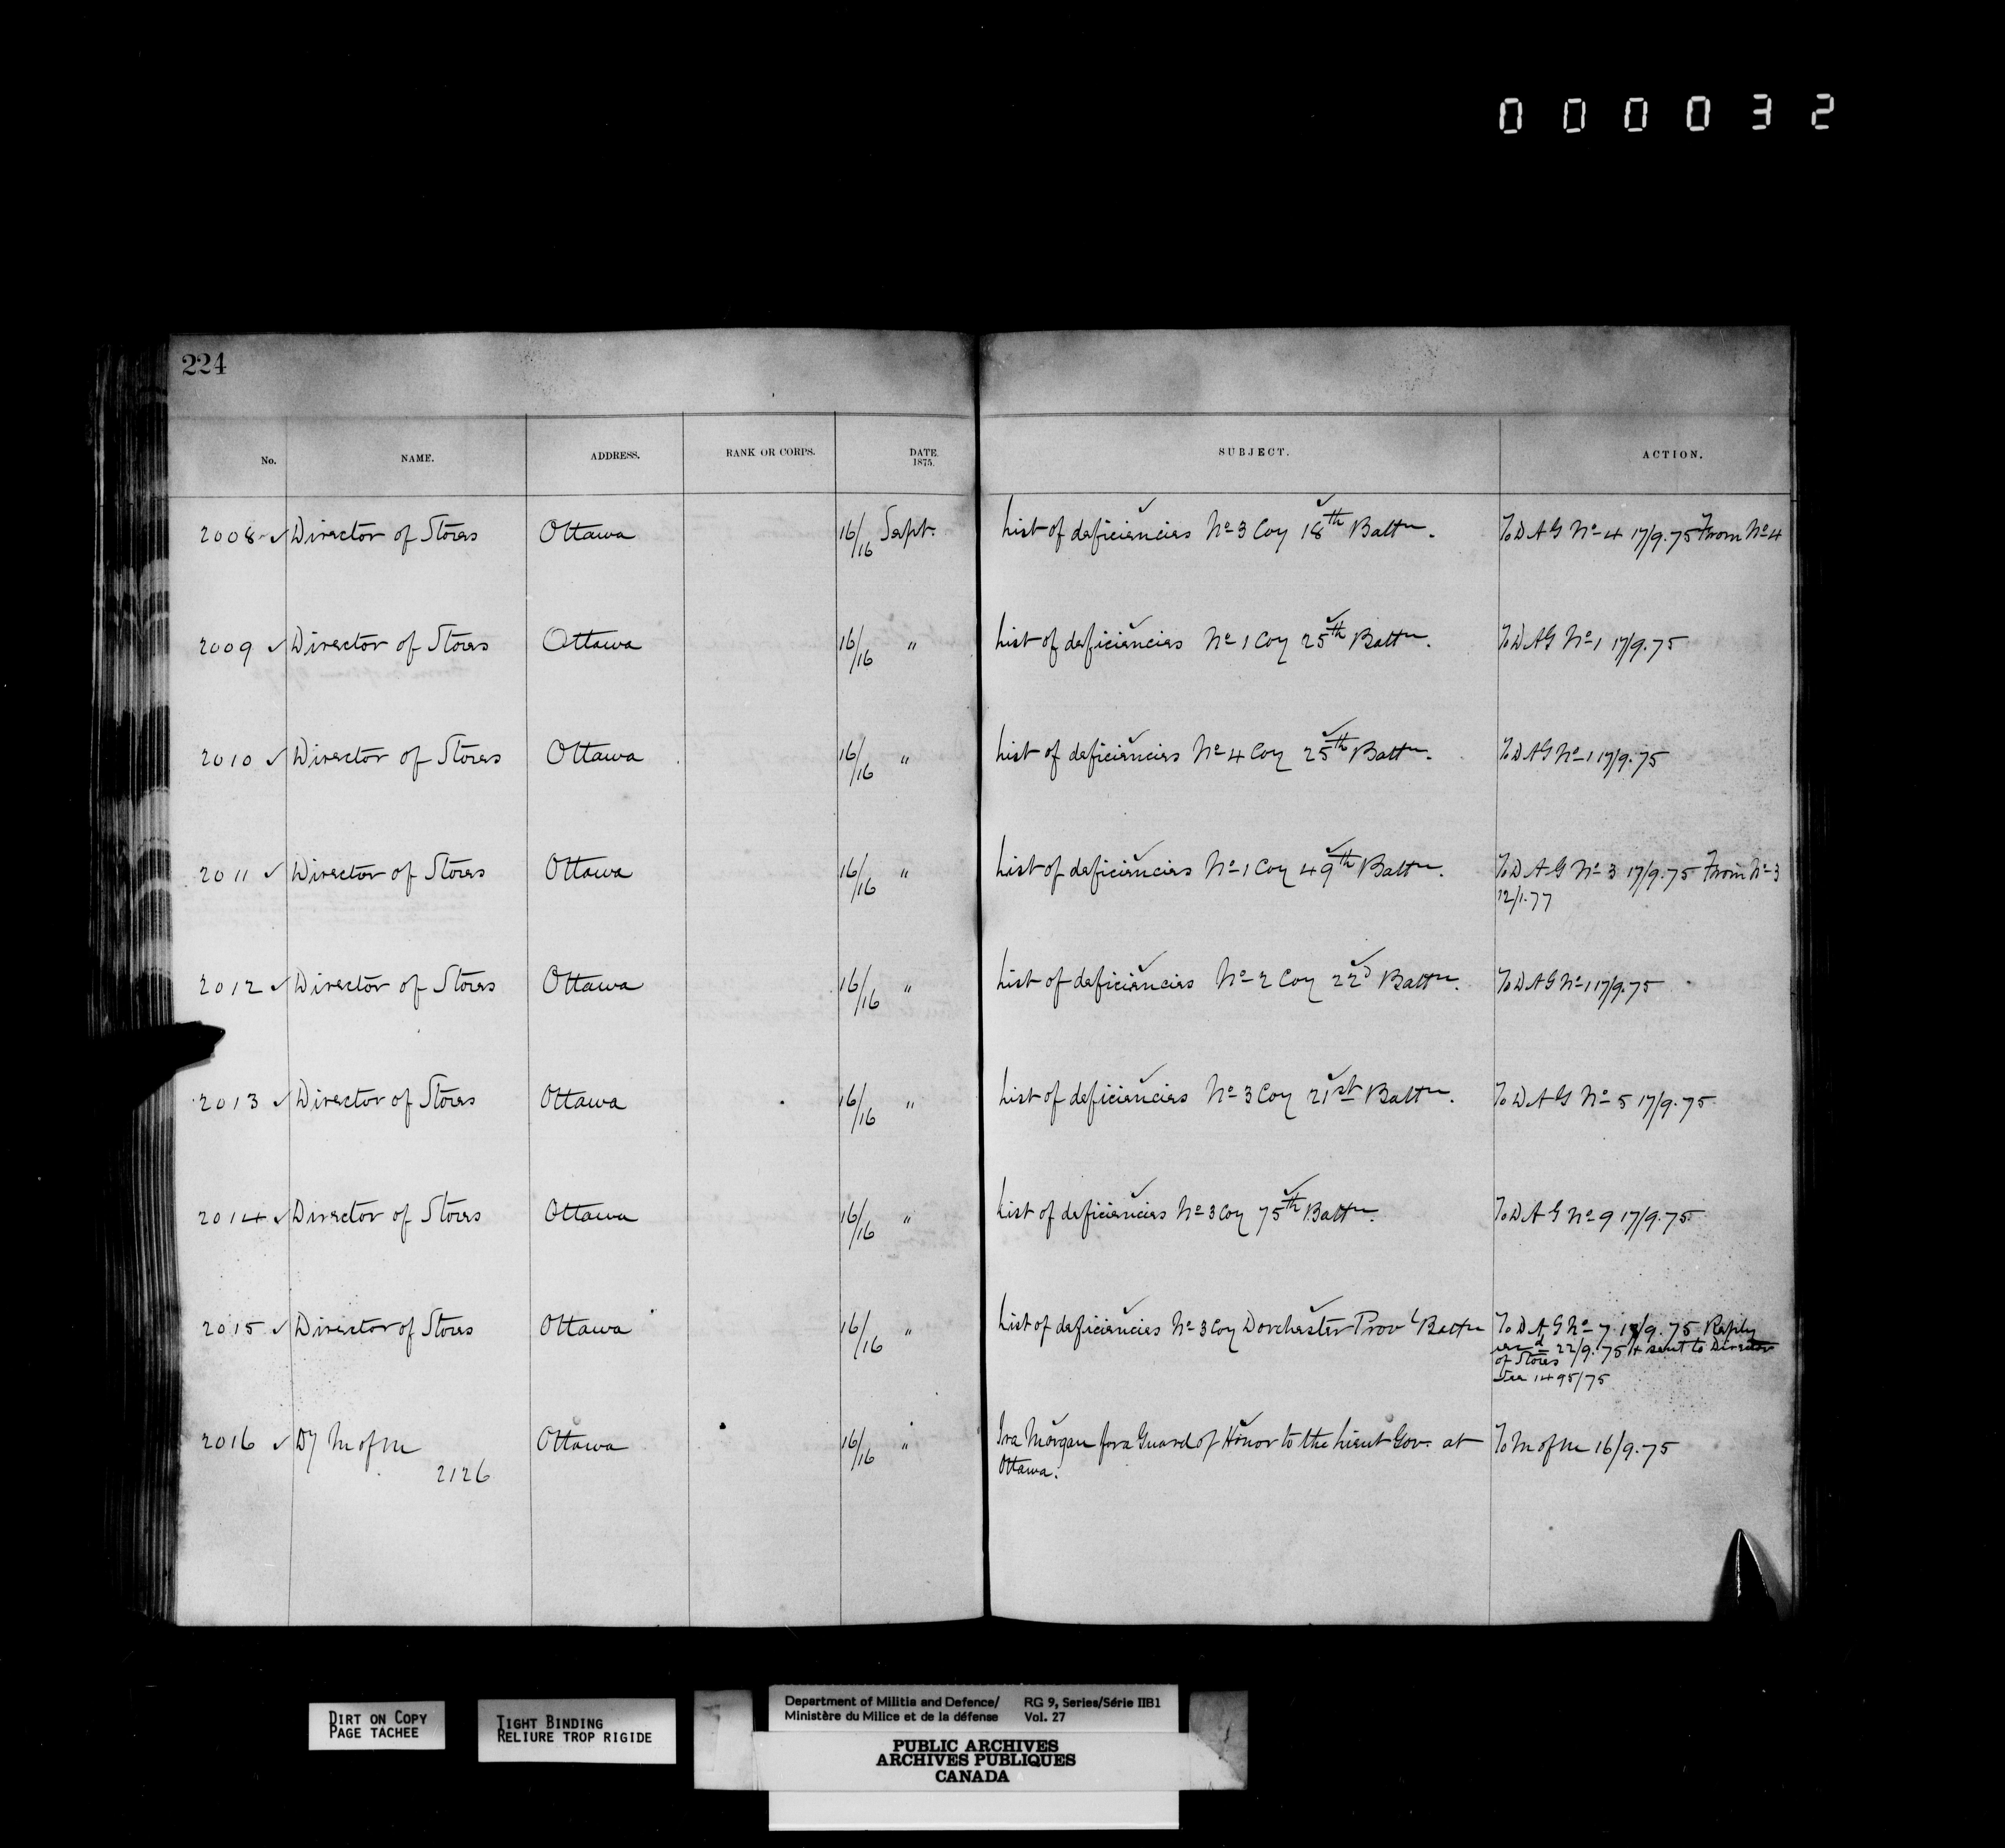 000032
224
No. NAME. ADDRESS. RANK OR CORPS. DATE. 1875. SUBJECT. ACTION.
2008 ✓ Director of Stores Ottawa 16/16 Sept. List of deficiencies No 3 Coy 18th Battn. To D A G No 4 17/9.75 From No 4
2009 ✓ Director of Stores Ottawa 16/16 " List of deficiencies No 1 Coy 25th Battn. To D A G No 1 17/9.75
2010 ✓ Director of Stores Ottawa 16/16 " List of deficiencies No 4 Coy 25th Battn. To D A G No 1 17/9.75
2011 ✓ Director of Stores Ottawa 16/16 " List of deficiencies No 1 Coy 49th Battn. To D A G No 3 17/9.75 From No 3
12/1.77
2012 ✓ Director of Stores Ottawa 16/16 " List of deficiencies No 2 Coy 22d Battn. To D A G No 1 17/9.75
2013 ✓ Director of Stores Ottawa 16/16 " List of deficiencies No 3 Coy 21st Battn. To D A G No 5 17/9.75
2014 ✓ Director of Stores Ottawa 16/16 " List of deficiencies No 3 Coy 75th Battn. To D A G No 9 17/9.75
2015 ✓ Director of Stores Ottawa 16/16 " List of deficiencies No 3 Coy Dorchester Provl Battn To D A G No 7 17/9.75 Reply
recd 22/9.75 & sent to Director
of Stores
See 1495/75
2016 ✓ Dy M of M Ottawa 16/16 " Ira Morgan for a Guard of Honor to the Lieut Gov. at To M of M 16/9.75
2126 Ottawa.
DIRT ON COPY
PAGE TACHEE
TIGHT BINDING
RELIURE TROP RIGIDE
Department of Militia and Defence/ RG 9, Series/Série IIB1
Ministère du Milice et de la défense Vol. 27
PUBLIC ARCHIVES
ARCHIVES PUBLIQUES
CANADA